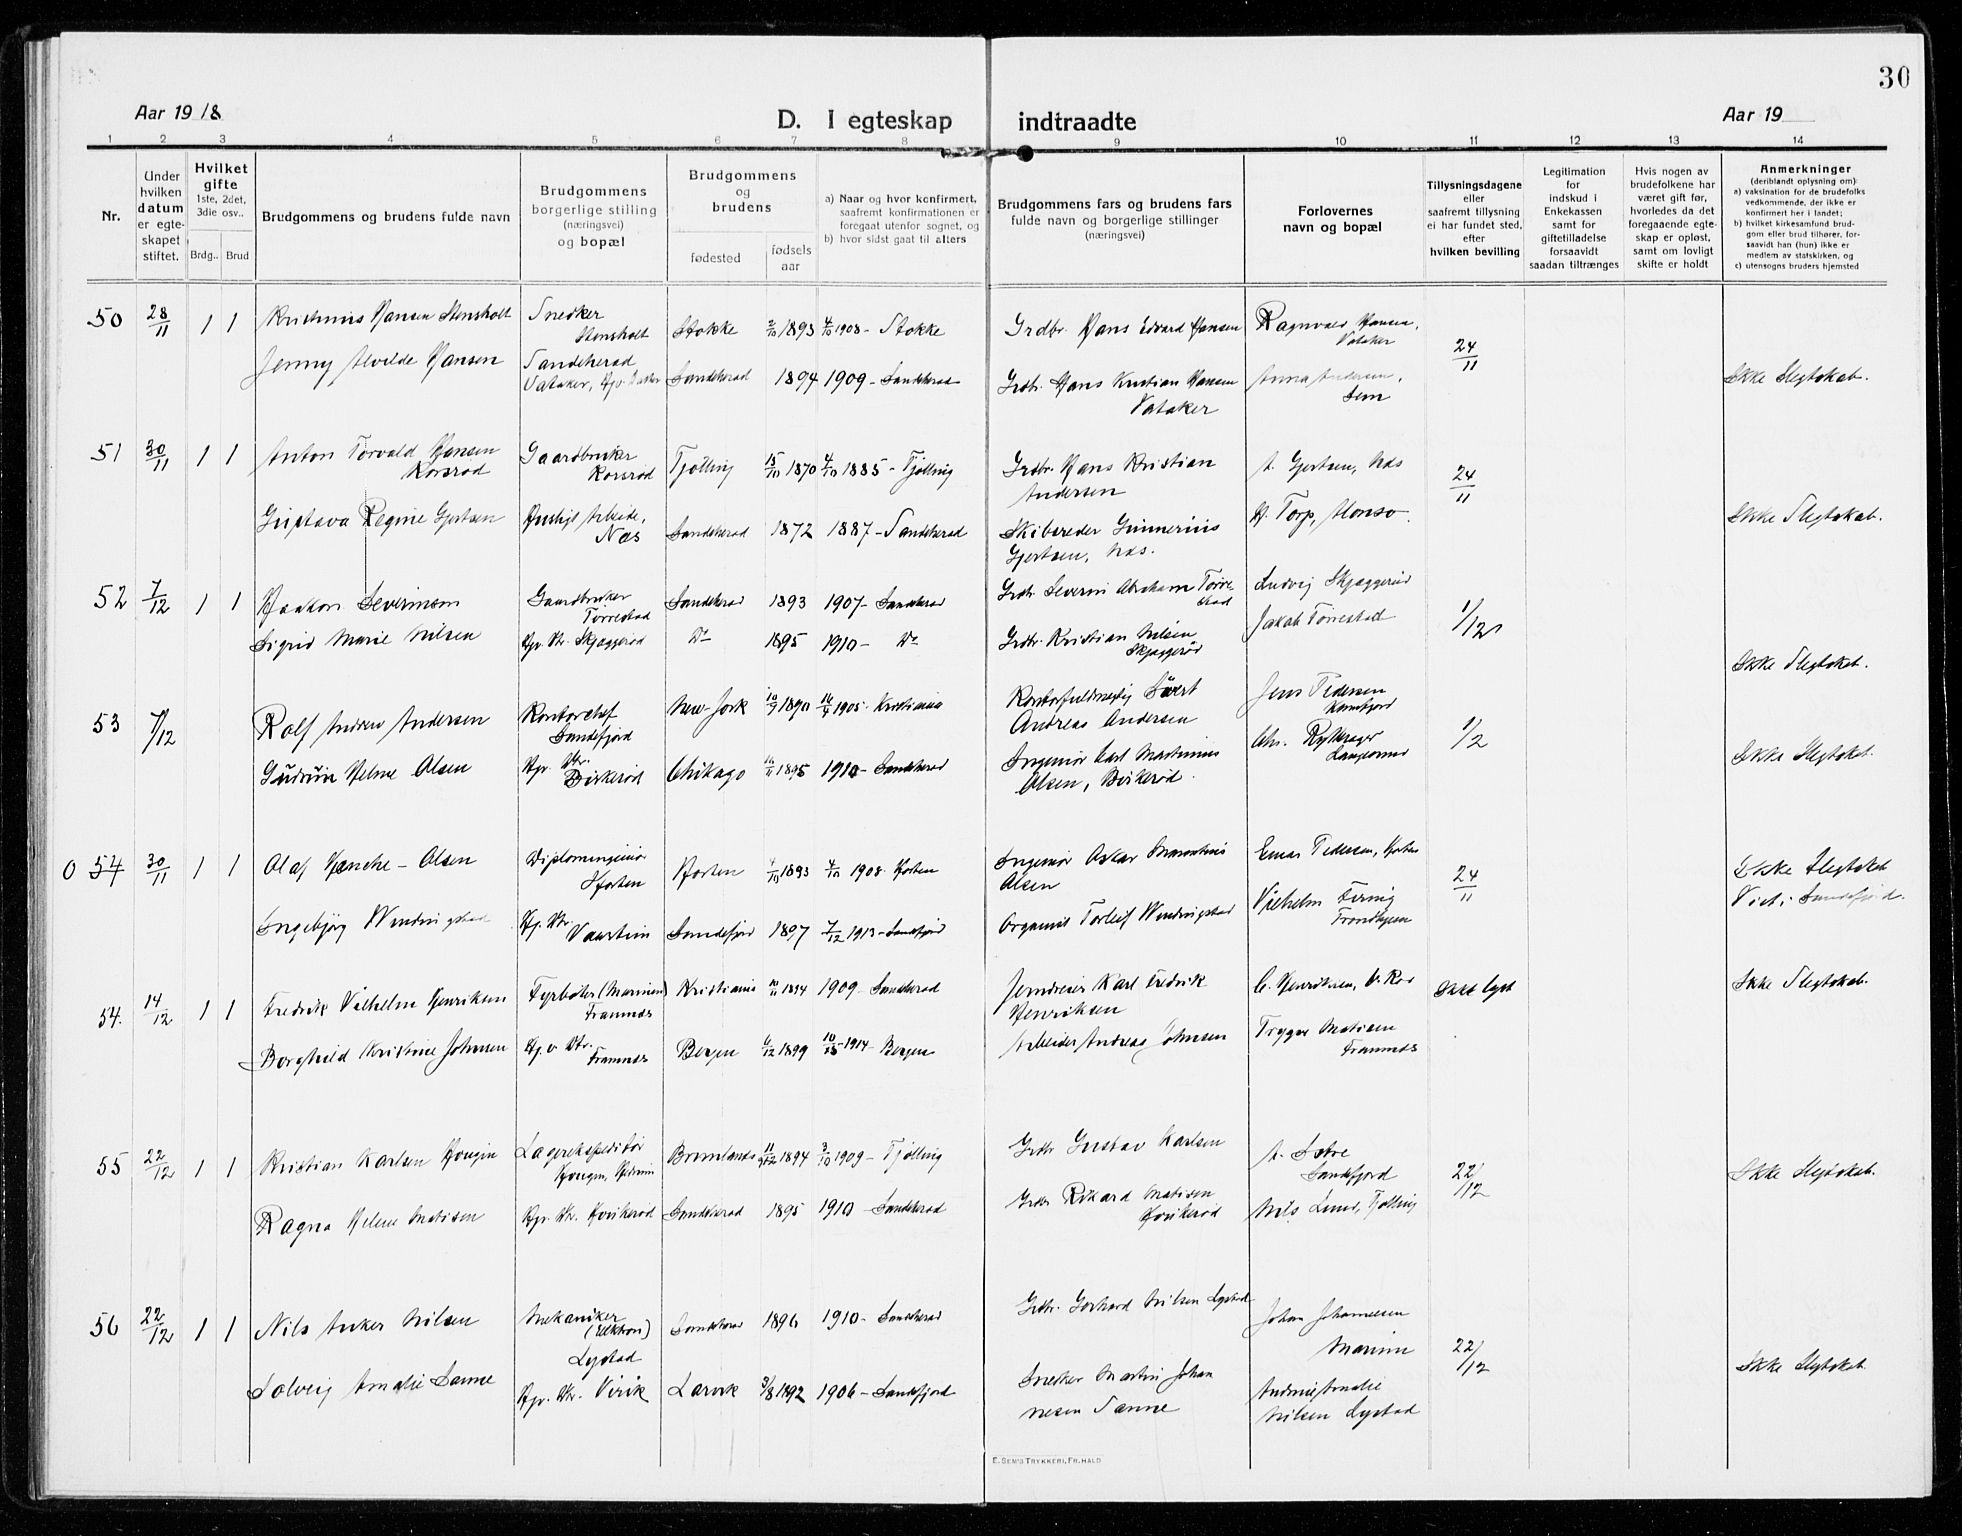 30
Aar 1918
D. I egteskap indtraadte
Aar 19
1 2 3 4 5 6 7 8 9 10 11 12 13 14
Nr.
Under hvilken datum er egteskapet stiftet.
Hvilket gifte 1ste, 2det, 3die osv..
Brdg.. Brud
Brudgommens og brudens fulde navn
Brudgommens borgerlige stilling (næringsvei) og bopæl
Brudgommens og brudens
fødested
fødselsaar
a) Naar og hvor konfirmert, saafremt konfirmationen er foregaat utenfor sognet, og
b) hvor sidst gaat til alters
Brudgommens fars og brudens fars fulde navn og borgerlige stillinger (næringsvei)
Forlovernes navn og bopæl
Tillysningsdagene eller saafremt tillysning ei har fundet sted, efter hvilken bevilling
Legitimation for indskud i Enkekassen samt for giftetilladelse forsaavidt saadan tiltrænges
Hvis nogen av brudefolkene har været gift før, hvorledes da det foregaaende egteskap er opløst, samt om lovligt skifte er holdt
Anmerkninger
(deriblandt oplysning om)
a) vaksination for de brudefolks vedkommende, der ikke er konfirmert her i landet;
b) hvilket kirkesamfund brudgom eller brud tilhører, forsaavidt han (hun) ikke er medlem av statskirken, og
c) utensogns bruders hjemsted
50 28/11 1 1 Kristinius Hansen Stensholt Snedker Stensholt Stokke 2/10 1893 4/10 1908 - Stokke Grdbr. Hans Edvard Hansen Ragnvald Hansen, Vataker 24/11
Jenny Alvilde Hansen Sandeherad Vataker, Sandeherad 1894 1909 - Sandeherad Grdbr. Hans Kristian Hansen Vataker Anna Andersen, Sem Ikke Slegtskab.
51 30/11 1 1 Anton Torvald Hansen Korsrød Gaardbruker Korsrød Tjølling 15/11 1870 4/10 1885 - Tjølling Grdbr. Hans Kristian Andersen A. Gjertsen, Næs 24/11
Gustava Regine Gjertsen Huslig Arbeide, Næs Sandeherad 1872 1887 - Sandeherad Skibsreder Gunnerius Gjertsen, Næs. H. Torp, Ikke Slegtskab.
52 7/12 1 1 Haakon Severinsen Gaardbruker Tørrestad Sandeherad 1893 1907 - Sandeherad Grdbr. Severin Abraham Tørrestad Ludvig Skjæggerød
Sigrid Marie Nilsen Hjv. Dtr. Skjæggerød Do 1895 1910 - Do Grdbr. Kristian Nilsen Skjæggerød Jakob Tørrestad 1/12 Ikke Slegtskab.
53 7/12 Rolf Andrew Andersen Kontorchef Sandefjord New-Jork 10/9 1890 14/4 1905 - Kristiania Andreas Andersen Jens Pedersen 1/12
Gudrun Helene Olsen Hjv. Dtr. Chikago 1895 1910 - Sandeherad Ingeniør Carl Martinius Olsen, Ikke Slegtskab.
0 54 30/11 1 1 Olaf Hencke-Olsen Diplomingeniør Horten Horten 4/10 1893 4/10 1908 - Horten Ingeniør Oskar Olsen Einar Pedersen, Horten 24/11 Ikke Slegtskab
Ingebjørg Windingstad Hj. Dtr. Sandefjord 1897 7/12 1913 - Sandefjord Organist Torleif Windingstad Vilhelm Trondhjem Viet i Sandefjord.
54. 14/12 1 1 Fredrik Vilhelm Henriksen Fyrbøter (Marinen) Framnæs Kristiania 1894 1909 - Sandeherad Karl Fredrik Henriksen C. Henriksen, Ikke lyst Ikke Slegtskab.
Borghild Kristine Johnsen Hjv. Dtr. Framnæs Bergen 6/12 1899 1914 - Bergen Arbeider Andreas Johnsen Trygve Matisen Framnæs
55 22/12 1 1 Kristian Karlsen Haugen Lagerekspeditør Brunlanes 1894 3/10 1909 - Tjølling Grdbr. Gustav Karlsen Sandefjord 22/12
Ragna Helene Matisen Hjv. Dtr. Sandeherad 1895 1910 - Sandeherad Grdbr. Rikard Matisen Nils Lund, Tjølling Ikke Slegtskab.
56 22/12 1 1 Nils Anker Nilsen Mekaniker Lystad Sandeherad 1896 1910 - Sandeherad Grdbr. Gerhard Nilsen Lystad Johan Johannesen 22/12
Solveig Amalie Sanne Hjv. Dtr. Virik Larvik 3/8 1892 1906 - Sandefjord Snedker Martin Johannesen Sanne Amalie Nilsen Lystad Ikke Slegtskab.
E. SEM'S TRYKKERI, FR.HALD